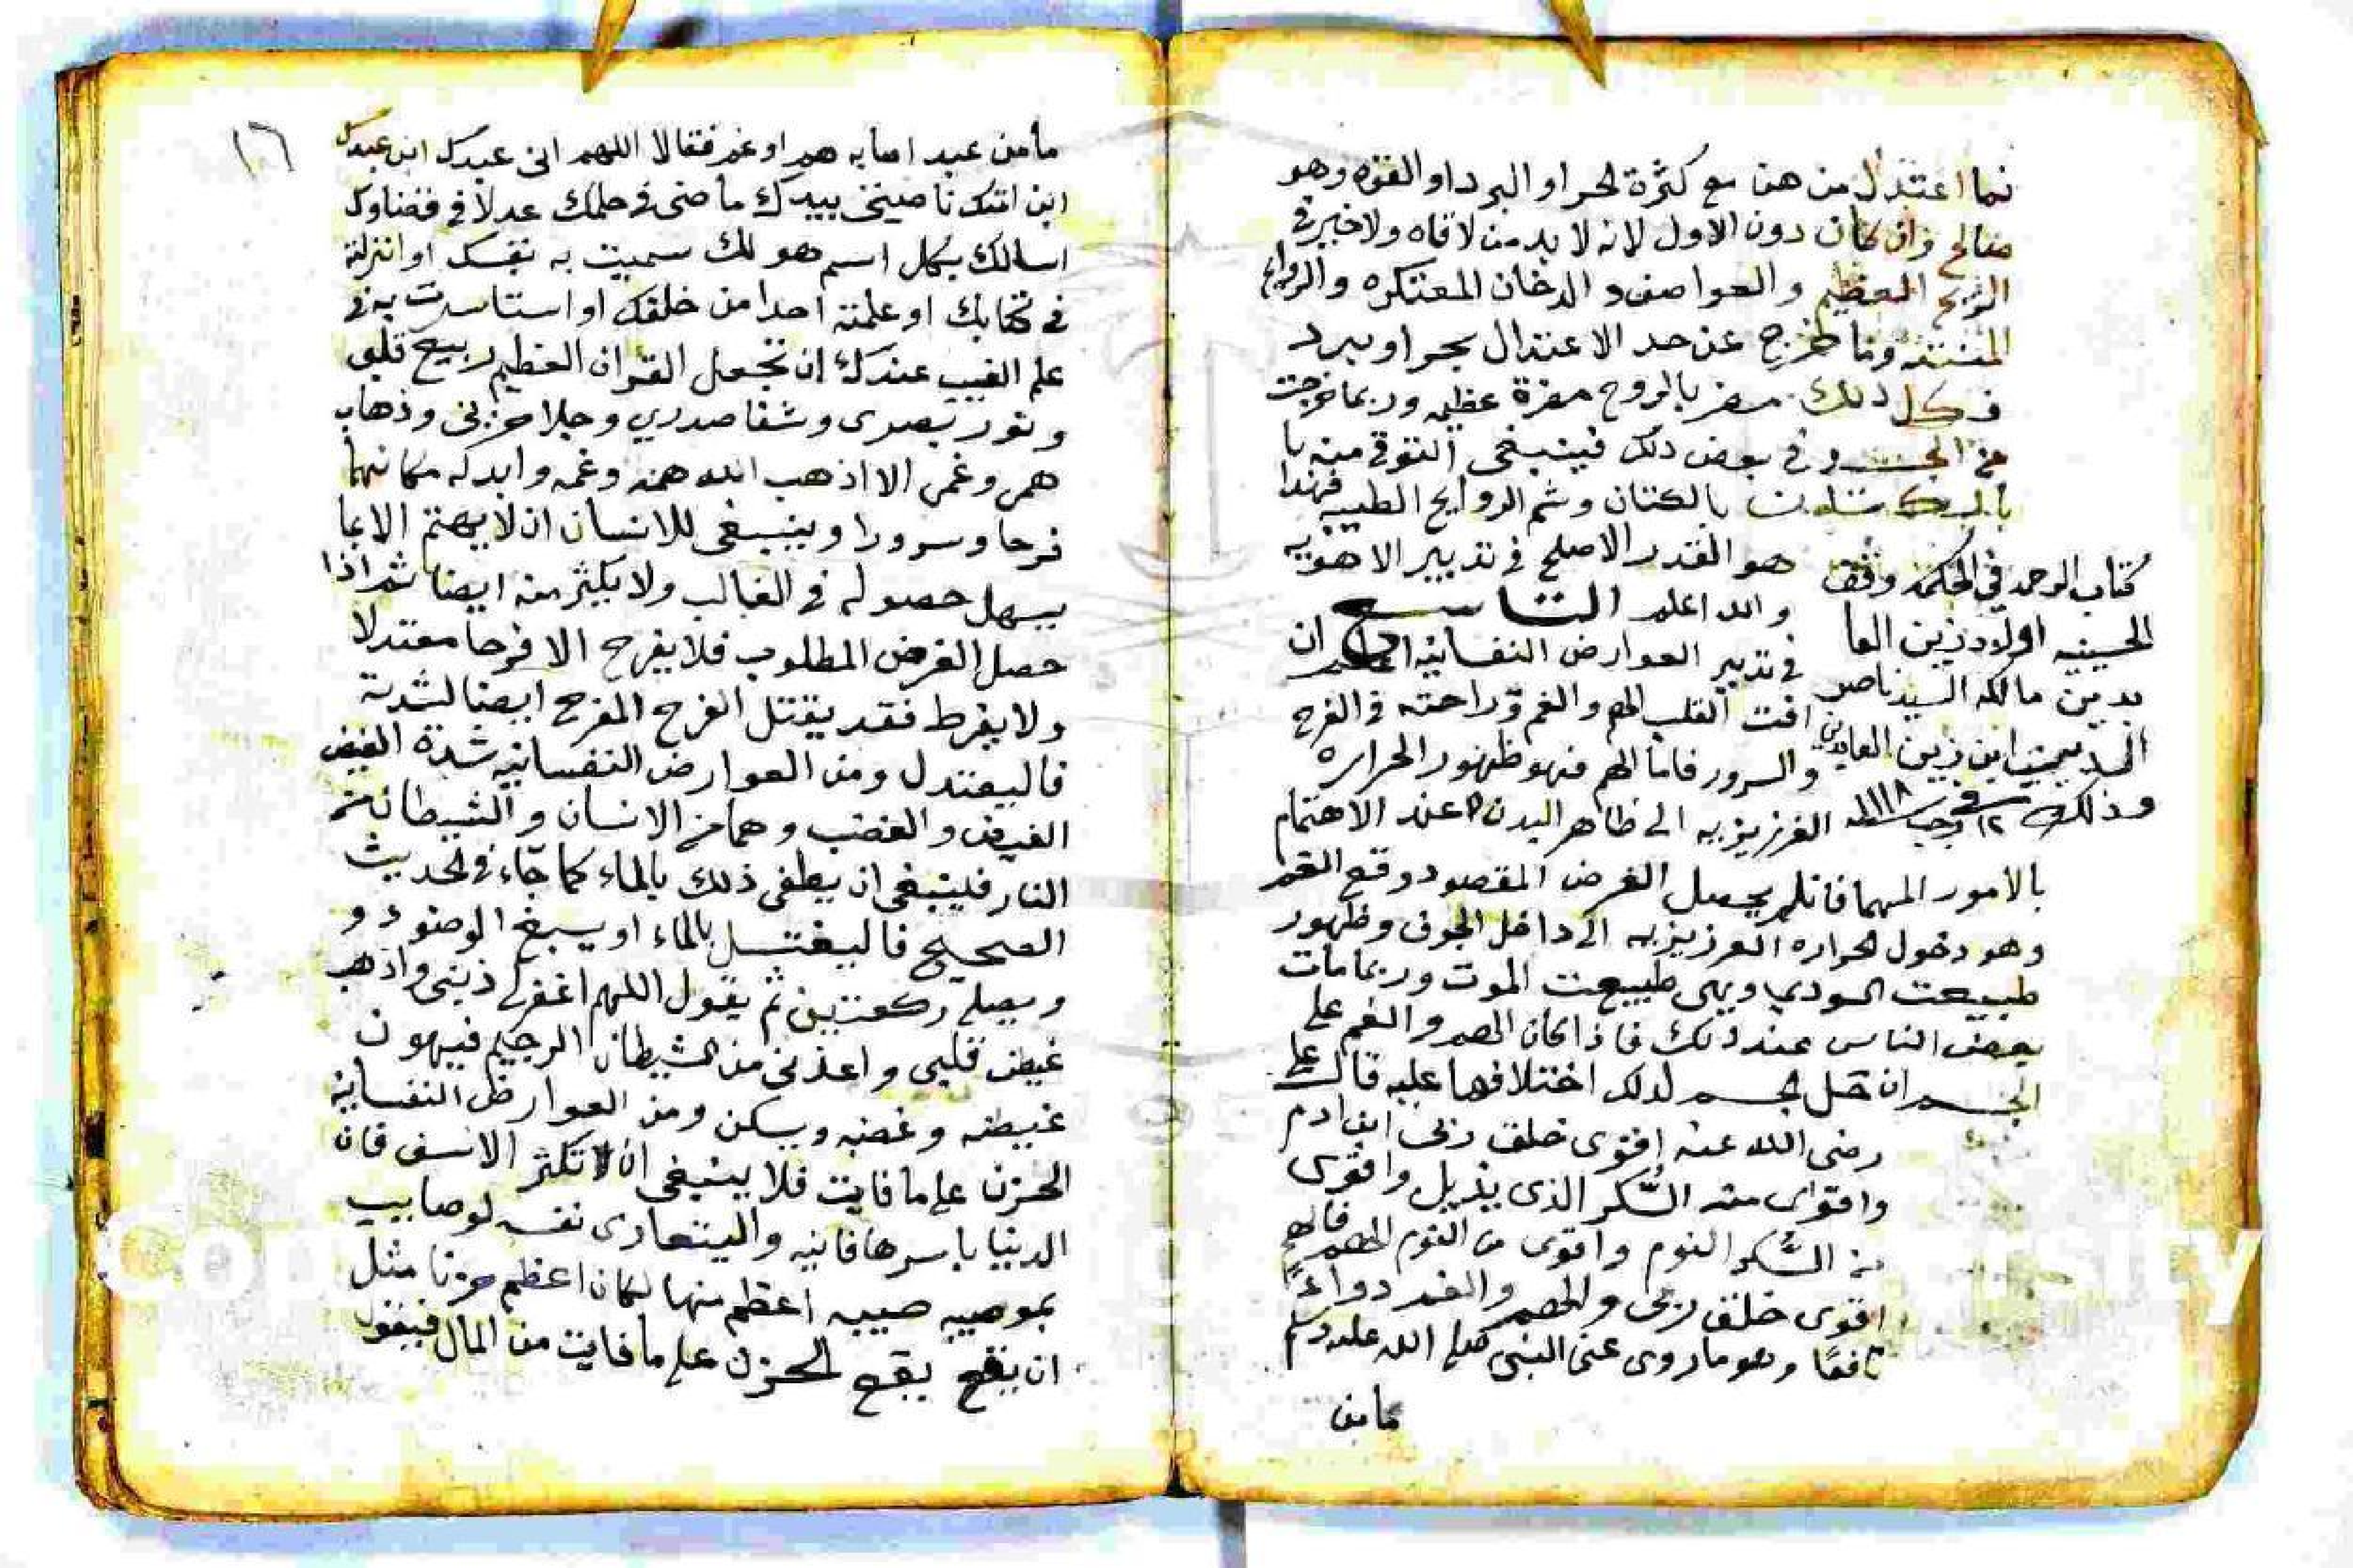 نما اعتدل من هن مع كثرة الحر او البرد او القوه وهو
صالح وان كان دون الاول لانه لا بد من لاقاه ولا خير في
الريح العظيم والعواصف و الدخان المعتكره والروايح
المنتنه وما خرج عن حد الاعتدال بحر او ببرد
فكل ذلك مضر بالروح مضرة عظيمه وربما خرجت
من الجسد في بعض ذلك فينبغى التوقى منه با
بالكتان وشم الروايح الطيبه فهذا
هو القدر الاصلح في تدبير الاهويه
والله اعلم التاسع
في تدبير العوارض النفسانيه اعلم ان
افت القلب الهم والغم وراحته في الفرح
والسرور فاما الهم فهو ظهور الحراره
الغرزيزيه الى ظاهر البدن عند الاهتمام
بالامور المهما فانلم يحصل الغرض المقصود وقع الغم
وهو دخول الحراره الغرزيزيه الى داخل الجوف وظهور
طبيعت السودى وهى طبيعت الموت وربما مات
بعض الناس عند ذلك فاذا كان الهم والغم على
الجسم ان حل لجسم لذلك اختلافهما عليه قال على
رضى الله عنه اقوى خلق ربى ابن ادم
واقوى منه السكر الذى يزيل واقوى
من السكر النوم واقوى من النوم الهم فالهم
اقوى خلق ربى والهم والغم دواءً
نافعًا وهو ما روى عن النبى صلى الله عليه وسلم
مامن
كتاب الرحمه في الحكمه وقف
الحسينيه اولاد زين العا
بدين مالكه السيد ناصر
ابن زين العابدين
وذلك ١٢ رجب سنه ١١١٨
١٦
مامن عبد اصابه هم او غم فقالا اللهم انى عبدك ابن عبدك
ابن امتك ناصيتى بيدك ماضى في حلمك عدلا في قضاوك
اسالك بكل اسم هو لك سميت به نفسك او انزلته
في كتابك او علمته احدا من خلقك او استاسرت به في
علم الغيب عندك ان تجعل القران العظيم ربيع قلبى
ونور بصرى وشفا صدري وجلا حزنى وذهاب
همى وغمى الا اذهب الله همه وغمه وابدله مكانهما
فرحا وسرورا وينبغى للانسان ان لا يهتم الا بما
يسهل حصوله في الغالب ولا يكثر منه ايضا ثم اذا
حصل الغرض المطلوب فلا يفرح الا فرحا معتدلا
ولا يفرط فقد يقتل الفرح المفرح ايضا لشدته
فاليعتدل ومن العوارض النفسانيه شدة الغيض
الغيض والغضب وهما من الانسان والشيطان من
النار فلينبغى ان يطفى ذلك بالماء كما جاء في الحديث
الصحيح فاليغتسل بالماء او يسبغ الوضوء و
ويصلى ركعتين ثم يقول اللهم اغفر لى ذنبى واذهب
غيض قلبى واعذنى من الشيطان الرجيم فيهون
غيضه وغضبه ويسكن ومن العوارظ النفسانيه
الحزن على ما فايت فلا ينبغى ان لا تكثر الاسف فان
الدنيا باسرها فانيه واليتعازى نفسه لوصابيب
بموصيبه صيبه اعظم منها لكان اعظم حزنا مثل
ان يقع يقع الحزن على ما فايت من المال فيقول